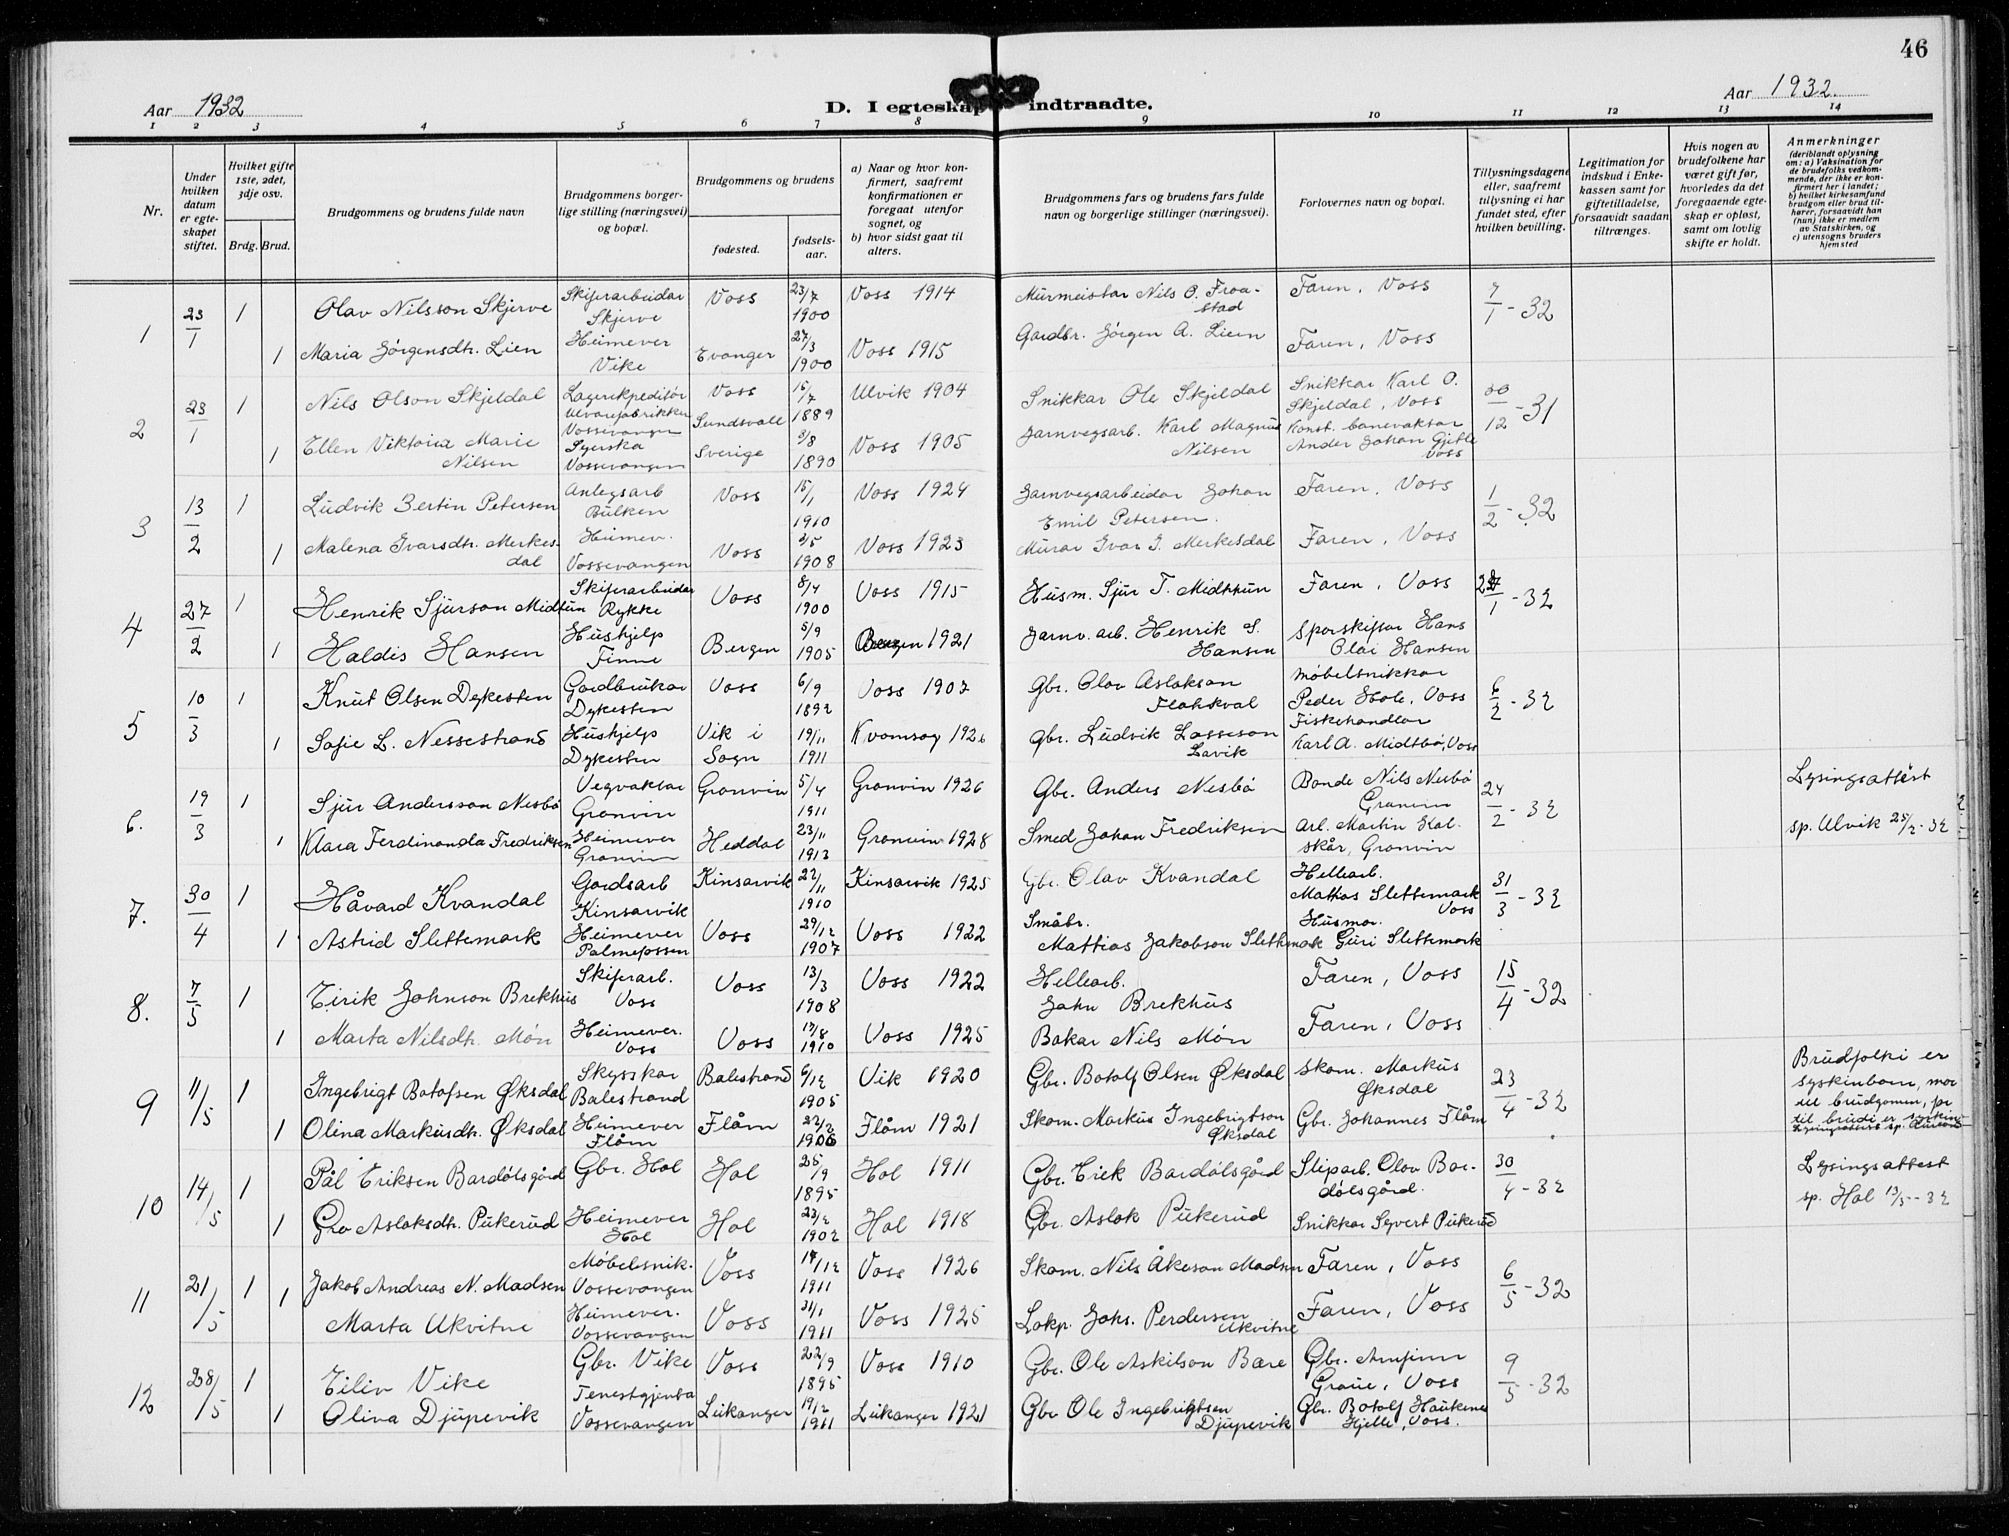 46
Aar 1932
D. I egteskap indtraadte.
Aar 1932.
1 2 3 4 5 6 7 8 9 10 11 12 13 14
Nr.
Under hvilken datum er egteskapet stiftet.
Hvilket gifte 1ste, 2det, 3dje osv.
Brdg. Brud.
Brudgommens og brudens fulde navn
Brudgommens borgerlige stilling (næringsvei) og bopæl.
Brudgommens og brudens
fødested.
fødselsaar.
a) Naar og hvor konfirmert, saafremt konfirmationen er foregaat utenfor sognet, og
b) hvor sidst gaat til alters.
Brudgommens fars og brudens fars fulde navn og borgerlige stillinger (næringsvei).
Forlovernes navn og bopæl.
Tillysningsdagene eller, saafremt tillysning ei har fundet sted, efter hvilken bevilling.
Legitimation for indskud i Enkekassen samt for giftetilladelse, forsaavidt saadan tiltrænges.
Hvis nogen av brudefolkene har været gift før, hvorledes da det foregaaende egteskap er opløst, samt om lovlig skifte er holdt.
Anmerkninger
(deriblandt oplysning om: a) Vaksination for de brudefolks vedkommende, der ikke er konfirmert her i landet; b) hvilket kirkesamfund brudgom eller brud tilhører, forsaavidt han (hun) ikke er medlem av Statskirken, og c) utensogns bruders hjemsted
1 23/1 1 Olav Nilsson Skjerve Skiferarbeidar Skjerve Voss 23/7 1900 Voss 1914 Murmeistar Nils O. Froastad Faren, Voss 7/1 - 32
1 Maria Jørgensdtr. Lien Heimever Vike Evanger 27/3 1900 Voss 1915 Gardbr. Jørgen A. Lien Faren, Voss
2 23/1 1 Nils Olson Skjeldal Lagerekspeditør Ulvarefabrikken Vossevangen Voss 15/7 1889 Ulvik 1904 Snikkar Ole Skjeldal Snikkar Karl O. Skjeldal, Voss 30/12 - 31
1 Ellen Viktoria Marie Nilsen Syerska Vossevangen Sundsvall Sverige 3/8 1890 Voss 1905 Jarnvegsarb. Karl Magnus Nilsen Konst. banevaktar Ander Johan Gjetle Voss
3 13/2 1 Ludvik Bertin Petersen Anlegsarb Bulken Voss 15/1 1910 Voss 1924 Jarnvegsarbeidar Johan Emil Petersen. Faren, Voss 1/2 - 32
1 Malena Ivarsdtr. Merkesdal Heimev. Vossevangen Voss 3/5 1908 Voss 1923 Murar Ivar I. Merkesdal Faren, Voss
4 27/2 1 Henrik Sjurson Midtun Skiferarbeider Rykke Voss 8/4 1900 Voss 1915 Husm. Sjur T. Midttun Faren, Voss 1 - 32
1 Haldis Hansen Hushjelp Finne Bergen 5/9 1905 Bergen 1921 Jarnv. arb. Henrik S. Hansen Sporskiftar Hans Olai Hansen
5 10/3 1 Knut Olsen Dykesten Gardbrukar Dykesten Voss 6/9 1892 Voss 1907 Gbr. Olav Aslakson Flatekval Møbelsnikkar Peder Hole, Voss 6/2 - 32
1 Sofie L. Nessestrand Hushjelp Dykesten Vik i Sogn 19/11 1911 Kvamsøy 1926 Gbr. Ludvik Lasseson Lavik Fiskehandlar Karl A. Midtbø, Voss
6. 19/3 1 Sjur Andersson Nesbø Vegvaktar Granvin Granvin 5/4 1911 Granvin 1926 Gbr. Anders Nesbø Bonde Nils Nesbø Granvin 24/2 - 32 Lysingsattest sp. Ulvik 25/2 - 32
1 Klara Ferdinanda Fredriksen Heimever Granvin Heddal 23/11 1913 Granvin 1928 Smed Johan Fredriksen Arb. Martin Kolskår, Granvin
7. 30/4 1 Håvard Kvandal Gardsarb Kinsarvik Kinsarvik 22/11 1910 Kinsarvik 1925 Gbr. Olav Kvandal Hellearb. Mattias Slettemark Voss 31/3 - 32
1 Astrid Slettemark Heimever Palmefossen Voss 29/12 1907 Voss 1922 Småbr. Mattias Jakobson Slettemark Husmor. Guri Slettemark
8. 7/5 1 Eirik Johnson Brekhus Skiferarb. Voss Voss 13/3 1908 Voss 1922 Hellearb. John Brekhus Faren, Voss 15/4 - 32
1 Marta Nilsdtr. Møn Heimever. Voss Voss 13/8 1910 Voss 1925 Bakar Nils Møn Faren, Voss
9 11/5 1 Ingebrigt Botofsen Øksdal Skysskar Balestrand Balestrand 6/12 1905 Vik 1920 Gbr. Botolf Olsen Øksdal Skom. Markus Øksdal 23/4 - 32 Brudfolki er syskinborn, mor til brudgomen, til brudi er syskin
1 Olina Markusdtr. Øksdal Heimever Flåm Flåm 22/2 1906 Flåm 1921 Skom. Markus Ingebrigtson Øksdal Gbr. Johannes Flåm
10 14/5 1 Pål Eriksen Bardølsgård Gbr. Hol Hol 25/9 1895 Hol 1911 Gbr. Eirik Bardølsgård Sliparb. Olav Bardølsgård. 30/4 - 32 Lysingsattest sp. Hol 13/5 - 32
1 Gro Aslaksdtr. Pukerud Heimever Hol Hol 23/2 1902 Hol 1918 Gbr. Aslak Pukerud Snikkar Syvert Pukerud
11 21/5 1 1 Jakob Andreas N. Madsen Møbelsnik. Vossevangen Voss 14/12 1911 Voss 1926 Skom. Nils Åkeson Madsen Faren, Voss 6/5 - 32
Marta Ukvitne Heimever. Vossevangen Voss 31/1 1911 Voss 1925 Lokp. Johs. Perdersen Ukvitne Faren, Voss
12 28/5 1 Eiliv Vike Gbr. Vike Voss 22/9 1895 Voss 1910 Gbr. Ole Askilson Bære Gbr. Arnfinn Graue, Voss 9/5 - 32
1 Olina Djupevik Tenestgjenta Vossevangen Leikanger 19/12 1911 Leikanger 1921 Gbr Ole Ingebrigtsen Djupevik Gbr. Botolf Haukenes Hjelle, Voss.